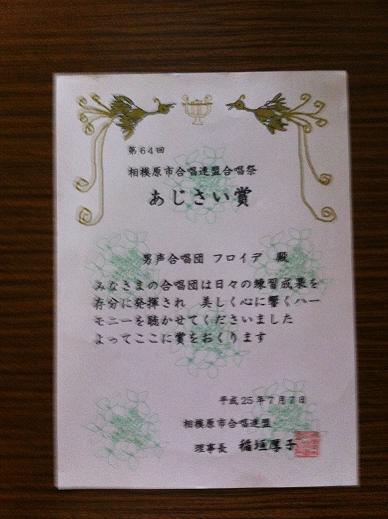 第64回
相模原市合唱連盟合唱祭
あじさい賞
男声合唱団 フロイデ 殿
みなさまの合唱団は日々の練習成果を
存分に発揮され 美しく心に響くハー
モニーを聴かせてくださいました
よってここに賞をおくります
平成25年7月7日
相模原市合唱連盟
理事長 稲垣厚子